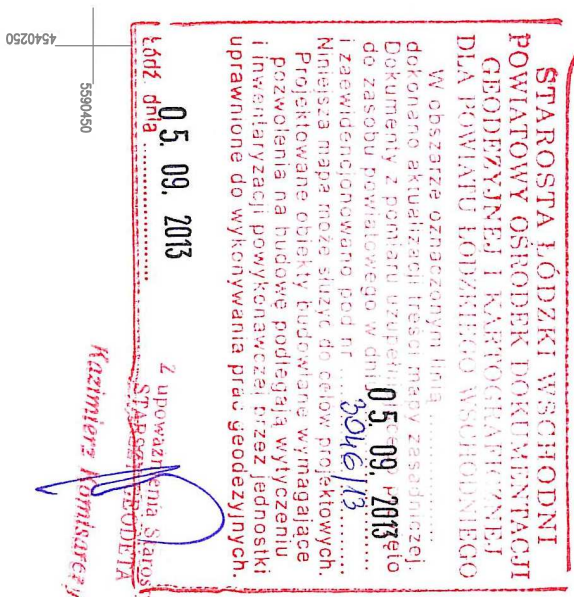 STAROSTA ŁÓDZKI WSCHODNI
POWIATOWY OŚRODEK DOKUMENTACJI
GEODEZYJNEJ I KARTOGRAFICZNEJ
DLA POWIATU ŁÓDZKIEGO WSCHODNIEGO
W obszarze oznaczonym linią ............
dokonano aktualizacji treści mapy zasadniczej
Dokumenty z pomiaru
do zasobu powiatowego w dniu 05. 09. 2013
i zaewidencjonowano pod nr 3046/13
Niniejsza mapa może służyć do celów projektowych.
Projektowane obiekty budowlane wymagające
pozwolenia na budowę podlegają wytyczeniu
i inwentaryzacji powykonawczej przez jednostki
uprawnione do wykonywania prac geodezyjnych.
Łódź, dnia 05. 09. 2013
Z upoważnienia Staros
GEODETA
Kazimierz
4540250
5590450